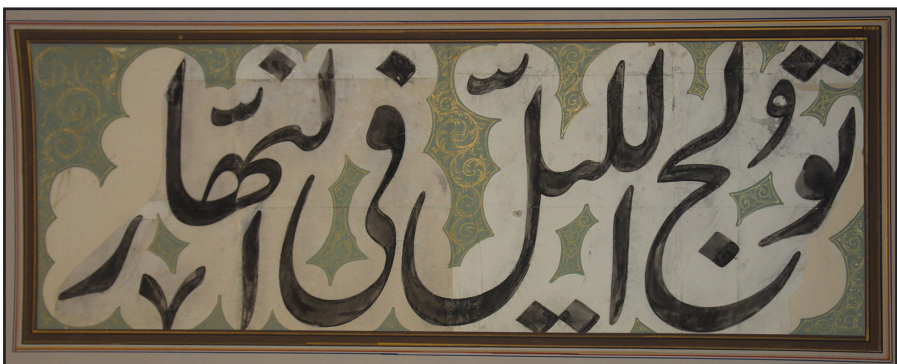 تولج الليل فى النهار